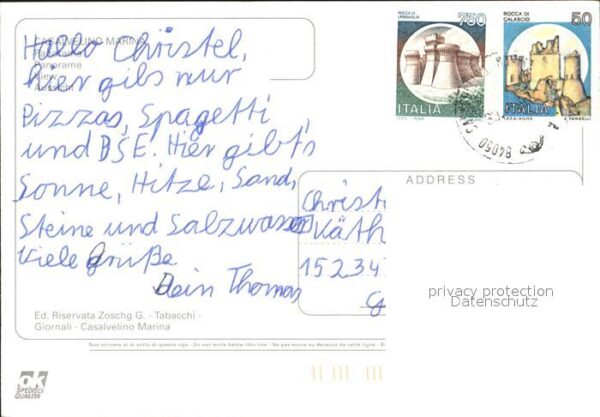 CASALVELINO MARINA
Panorama
Panorame
View
Hallo Christel,
hier gibs nur
Pizzas, Spagetti,
und BSE. Hier gibt's
Sonne, Hitze, Sand,
Steine und Salzwasser
Viele Grüße
Dein Thomas
Ed. Riservata Zoschg G. - Tabacchi -
Giornali - Casalvelino Marina
Non scrivere al di sotto di questa riga - Do not write below this line - Ne pas écrire au-dessous de cette ligne
SPEDISCI
QUALITÀ
ROCCA DI
URBISAGLIA
750
ITALIA
ROCCA DI
CALASCIO
50
ITALIA
84050
ADDRESS
Christ
Käth
15234
privacy protection
Datenschutz